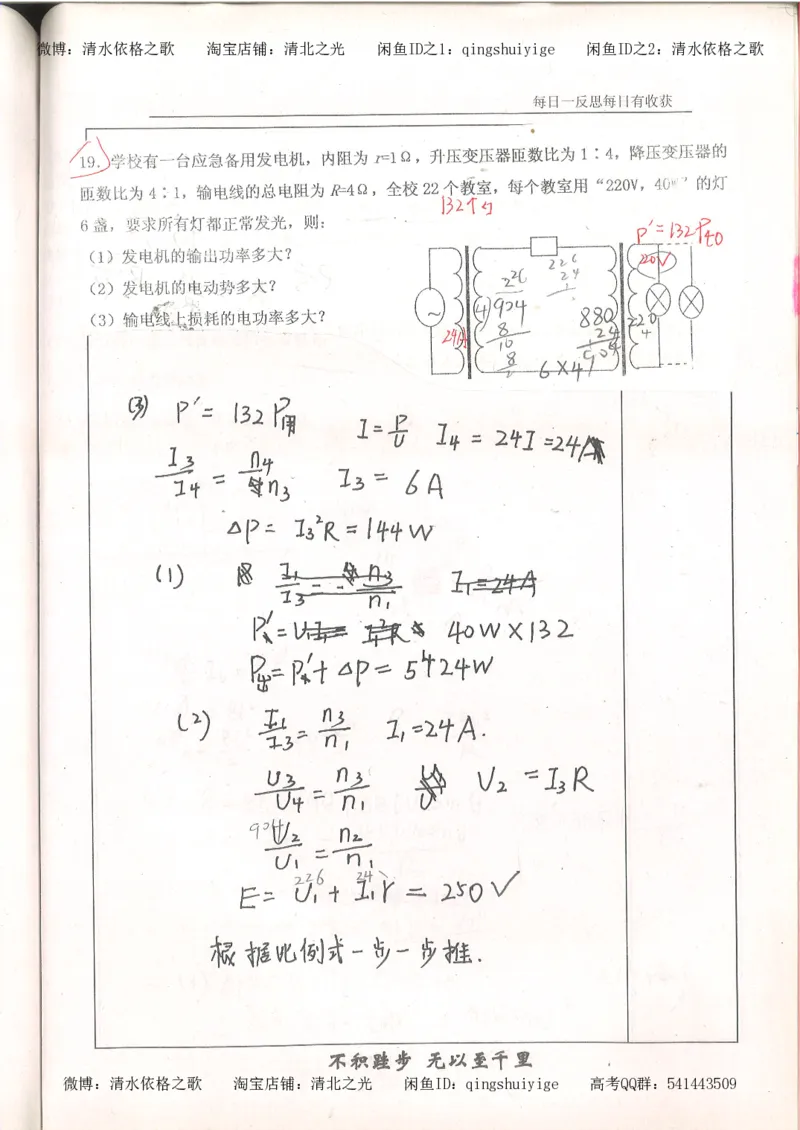 微博：清水依格之歌 淘宝店铺：清北之光 闲鱼ID之1：qingshuiyige 闲鱼ID之2：清水依格之歌
每日一反思每日有收获
19. 学校有一台应急备用发电机，内阻为 r=1Ω，升压变压器匝数比为 1∶4，降压变压器的
匝数比为 4∶1，输电线的总电阻为 R=4Ω，全校 22 个教室，每个教室用“220V，40W”的灯
132个灯
6 盏，要求所有灯都正常发光，则：
P'=132P40
（1）发电机的输出功率多大？
（2）发电机的电动势多大？
（3）输电线上损耗的电功率多大？
220V
226
24
226
4)904
8
10
8
24A
880
24
904
220
4
6×4
(3) P'=132P用 I=P/U I4=24I=24A
I3/I4=n4/n3 I3=6A
ΔP=I3²R=144W
(1) I1/I3=n3/n1 I1=24A
P'=40W×132
P出=P'+ΔP=5424W
(2) I1/I3=n3/n1 I1=24A.
U3/U4=n3/n1 U2=I3R
904
U2/U1=n2/n1
226 24
E=U1+I1r=250V
根据比例式一步一步推.
不积跬步 无以至千里
微博：清水依格之歌 淘宝店铺：清北之光 闲鱼ID：qingshuiyige 高考QQ群：541443509